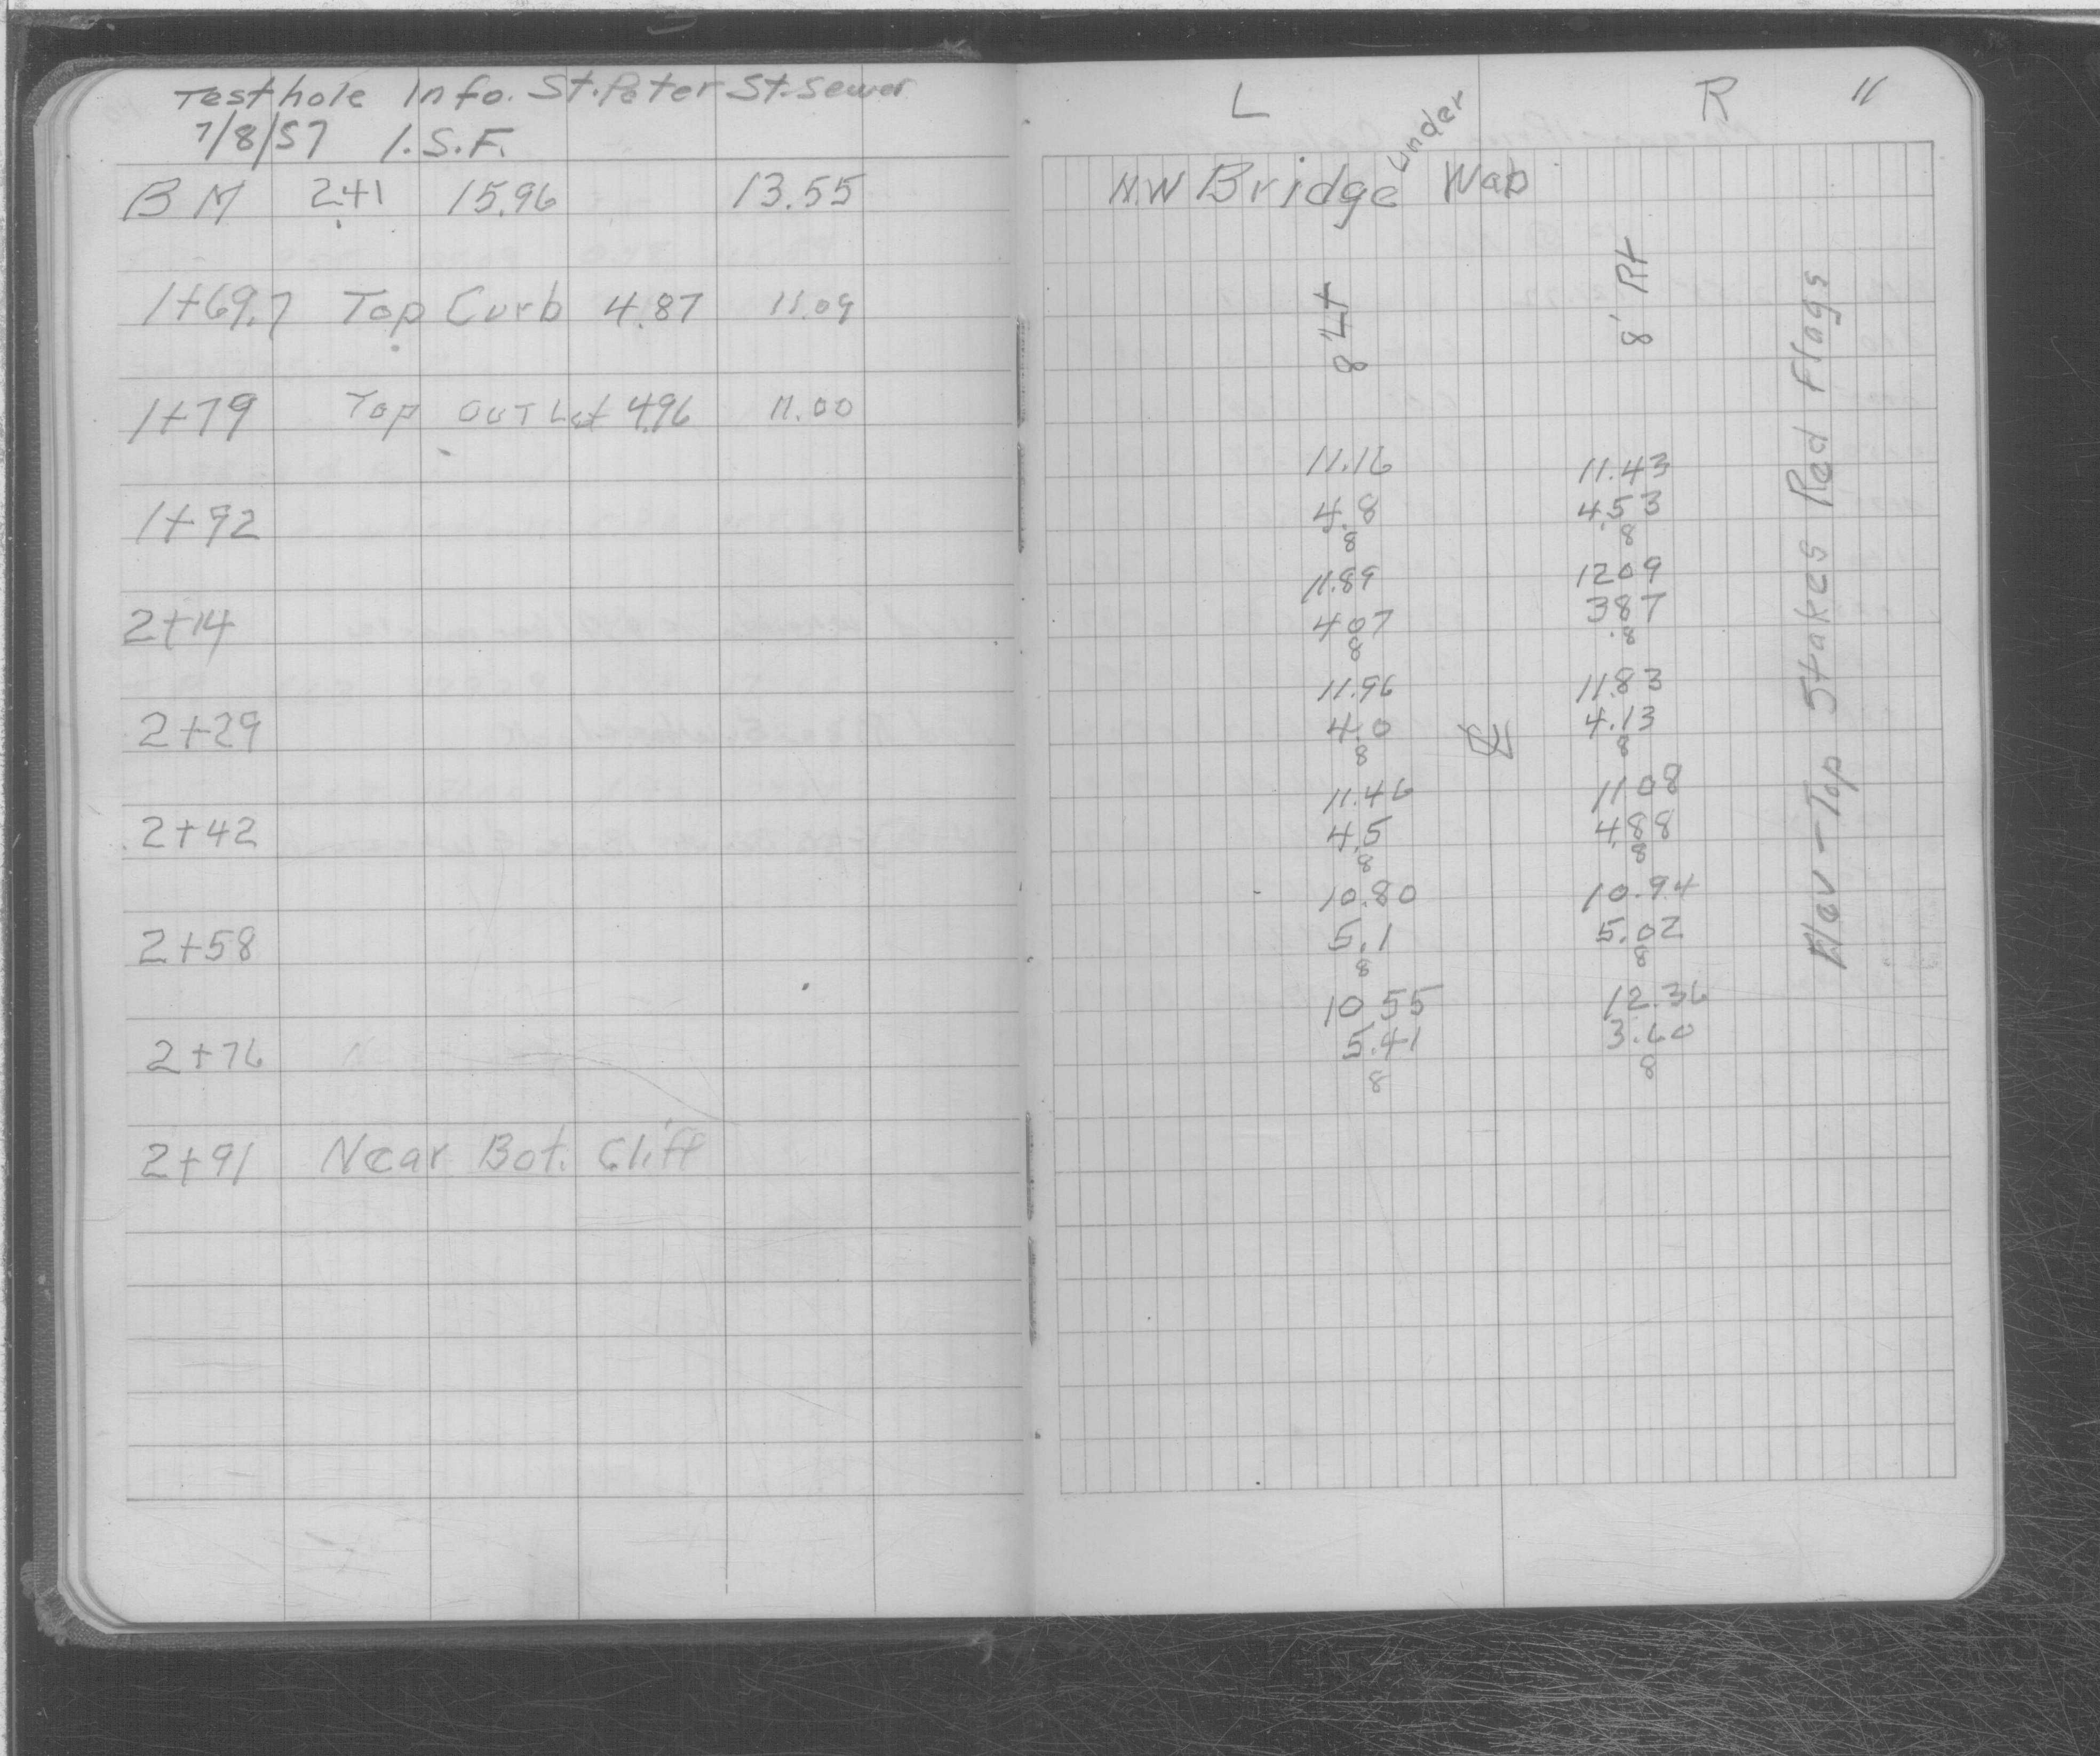 Testhole Info. St. Peter St. Sewer
7/8/57 I.S.F.
BM 2.41 15.96 13.55
1+69.7 Top Curb 4.87 11.09
1+79 Top OUTLet 4.96 11.00
1+92
2+14
2+29
2+42
2+58
2+76
2+91 Near Bot. Cliff
L R 11
N.W Bridge Under Wab
8' Lt 8' Rt
11.16 11.43
4.8 4.53
8 8
11.89 1209
407 387
8 8
11.96 11.83
4.0 4.13
8 8
11.46 1108
4.5 4.88
8 8
10.80 10.94
5.1 5.02
8 8
10.55 12.36
5.41 3.60
8 8
Elev - Top Stakes Red Flags